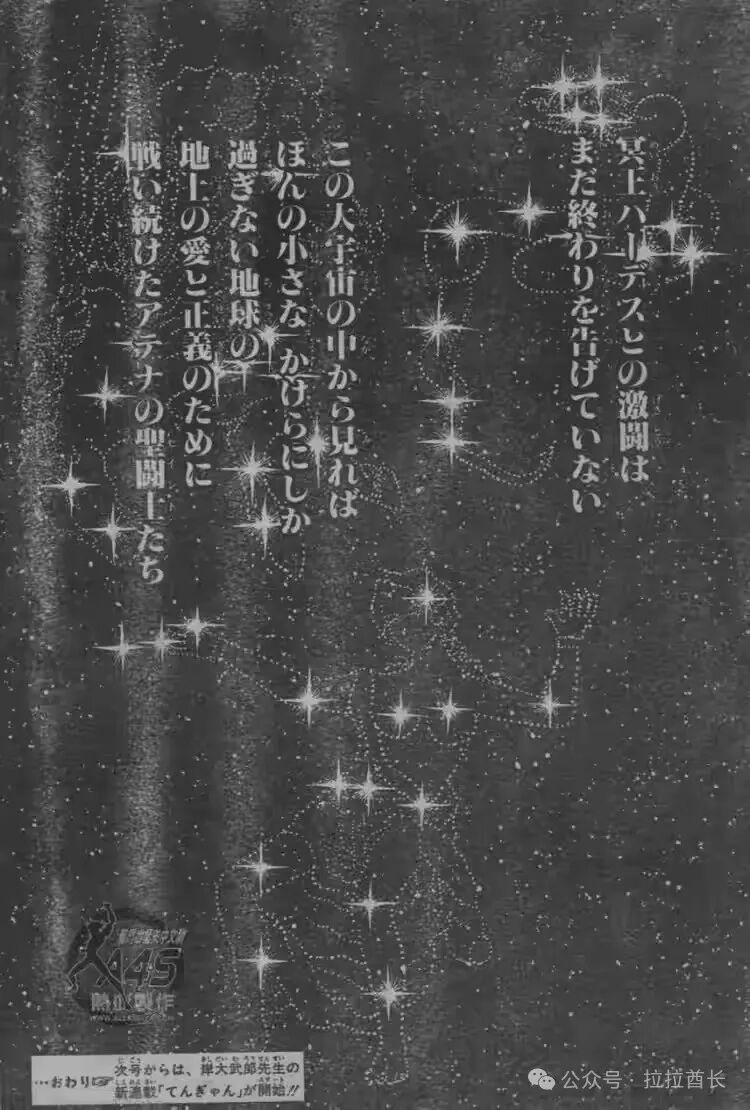 冥王ハーデスとの激闘は
まだ終わりを告げていない
この大宇宙の中から見れば
ほんの小さな かけらにしか
過ぎない地球の
地上の愛と正義のために
戦い続けたアテナの聖闘士たち
…おわり☞
次号からは、岸大武郎先生の
新連載「てんぎゃん」が開始!!
A4S
公众号 · 拉拉酋长